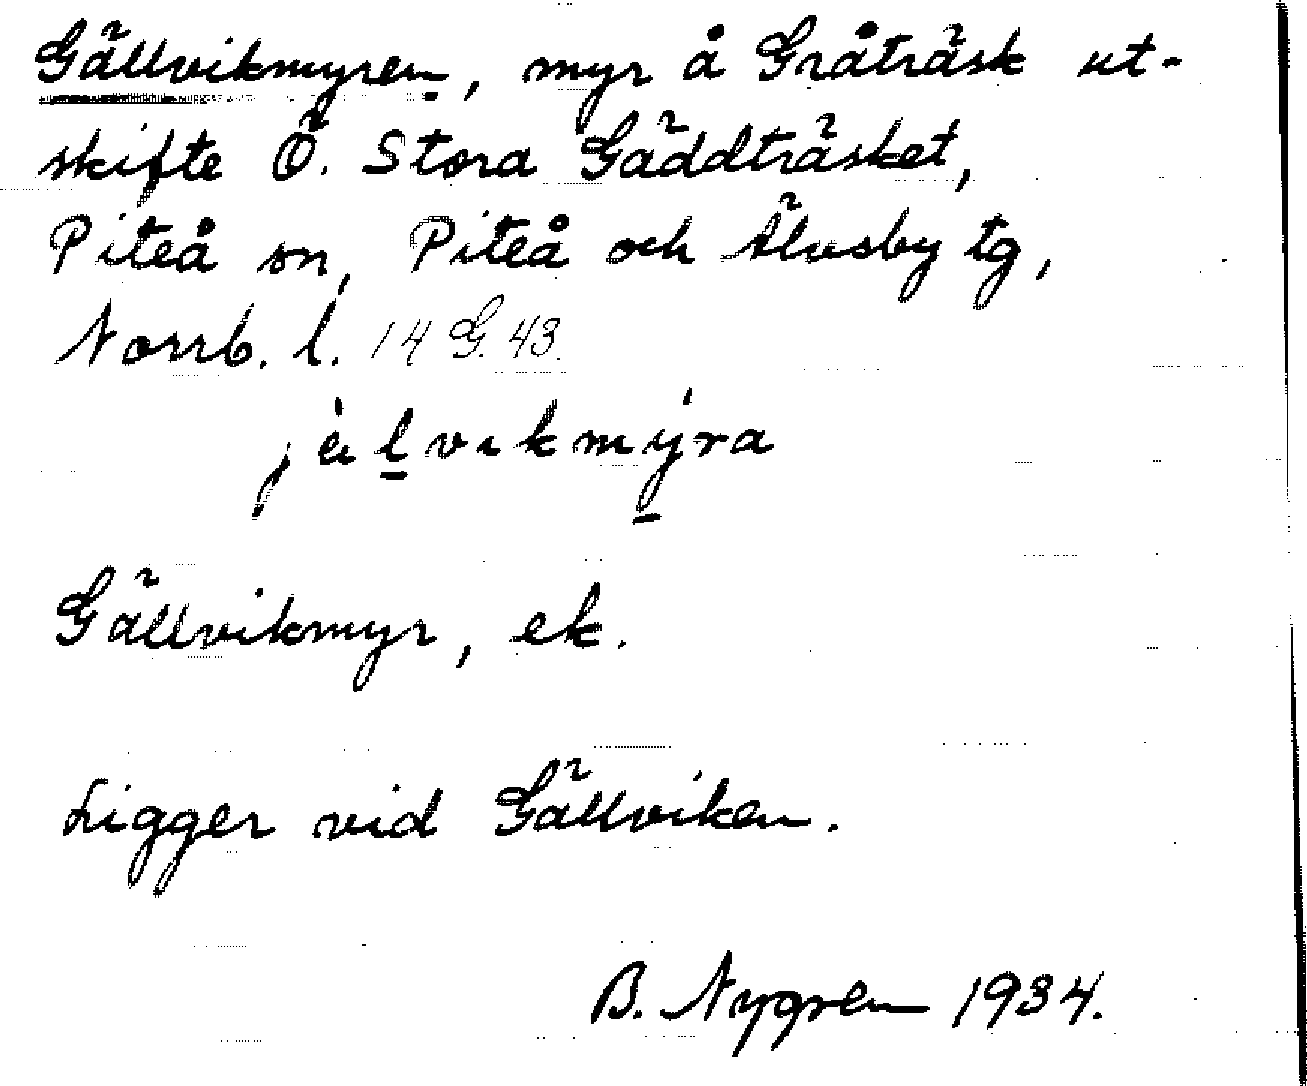 Gällvikmyren, myr å Gråträsk ut-
skifte Ö. Stora Gäddträsket,
Piteå sn, Piteå och Älvsby tg,
Norrb. l. 14 G. 43.
Gällvikmyr, ek.
Ligger vid Gällviken.
B. Nygren 1934.